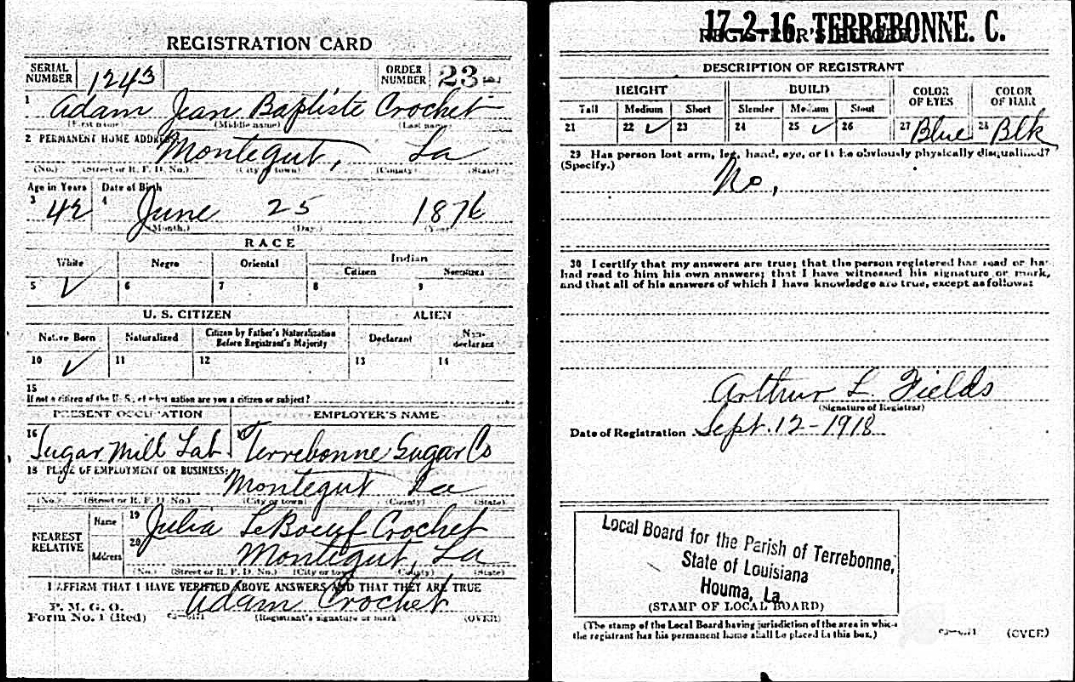 REGISTRATION CARD
SERIAL NUMBER 1243 ORDER NUMBER 23
1 Adam Jean Baptiste Crochet
(First name) (Middle name) (Last name)
2 PERMANENT HOME ADDRESS:
Montegut, La
(No.) (Street or R. F. D. No.) (City or town) (County) (State)
Age in Years Date of Birth
3 42 4 June 25 1876
(Month.) (Day.) (Year.)
RACE
White Negro Oriental Indian
Citizen Noncitizen
5 ✓ 6 7 8 9
U. S. CITIZEN ALIEN
Native Born Naturalized Citizen by Father's Naturalization Before Registrant's Majority Declarant Non-declarant
10 ✓ 11 12 13 14
15
If not a citizen of the U. S., of what nation are you a citizen or subject?
PRESENT OCCUPATION EMPLOYER'S NAME
16 Sugar Mill Lab Terrebonne Sugar Co
18 PLACE OF EMPLOYMENT OR BUSINESS:
Montegut La
(No.) (Street or R. F. D. No.) (City or town) (County) (State)
NEAREST RELATIVE Name 19 Julia LeBoeuf Crochet
Address 20 Montegut, La
(No.) (Street or R. F. D. No.) (City or town) (County) (State)
I AFFIRM THAT I HAVE VERIFIED ABOVE ANSWERS AND THAT THEY ARE TRUE
Adam Crochet
P. M. G. O.
Form No. 1 (Red) (Registrant's signature or mark) (OVER)
17-2-16 TERREBONNE. C.
REGISTRAR'S REPORT
DESCRIPTION OF REGISTRANT
HEIGHT BUILD COLOR OF EYES COLOR OF HAIR
Tall Medium Short Slender Medium Stout
21 22 ✓ 23 24 25 ✓ 26 27 Blue 28 Blk
29 Has person lost arm, leg, hand, eye, or is he obviously physically disqualified?
(Specify.)
No,
30 I certify that my answers are true; that the person registered has read or has
had read to him his own answers; that I have witnessed his signature or mark,
and that all of his answers of which I have knowledge are true, except as follows:
Arthur L Fields
(Signature of Registrar)
Date of Registration Sept. 12-1918
Local Board for the Parish of Terrebonne,
State of Louisiana
Houma, La
(STAMP OF LOCAL BOARD)
(The stamp of the Local Board having jurisdiction of the area in which
the registrant has his permanent home shall be placed in this box.)
(OVER)